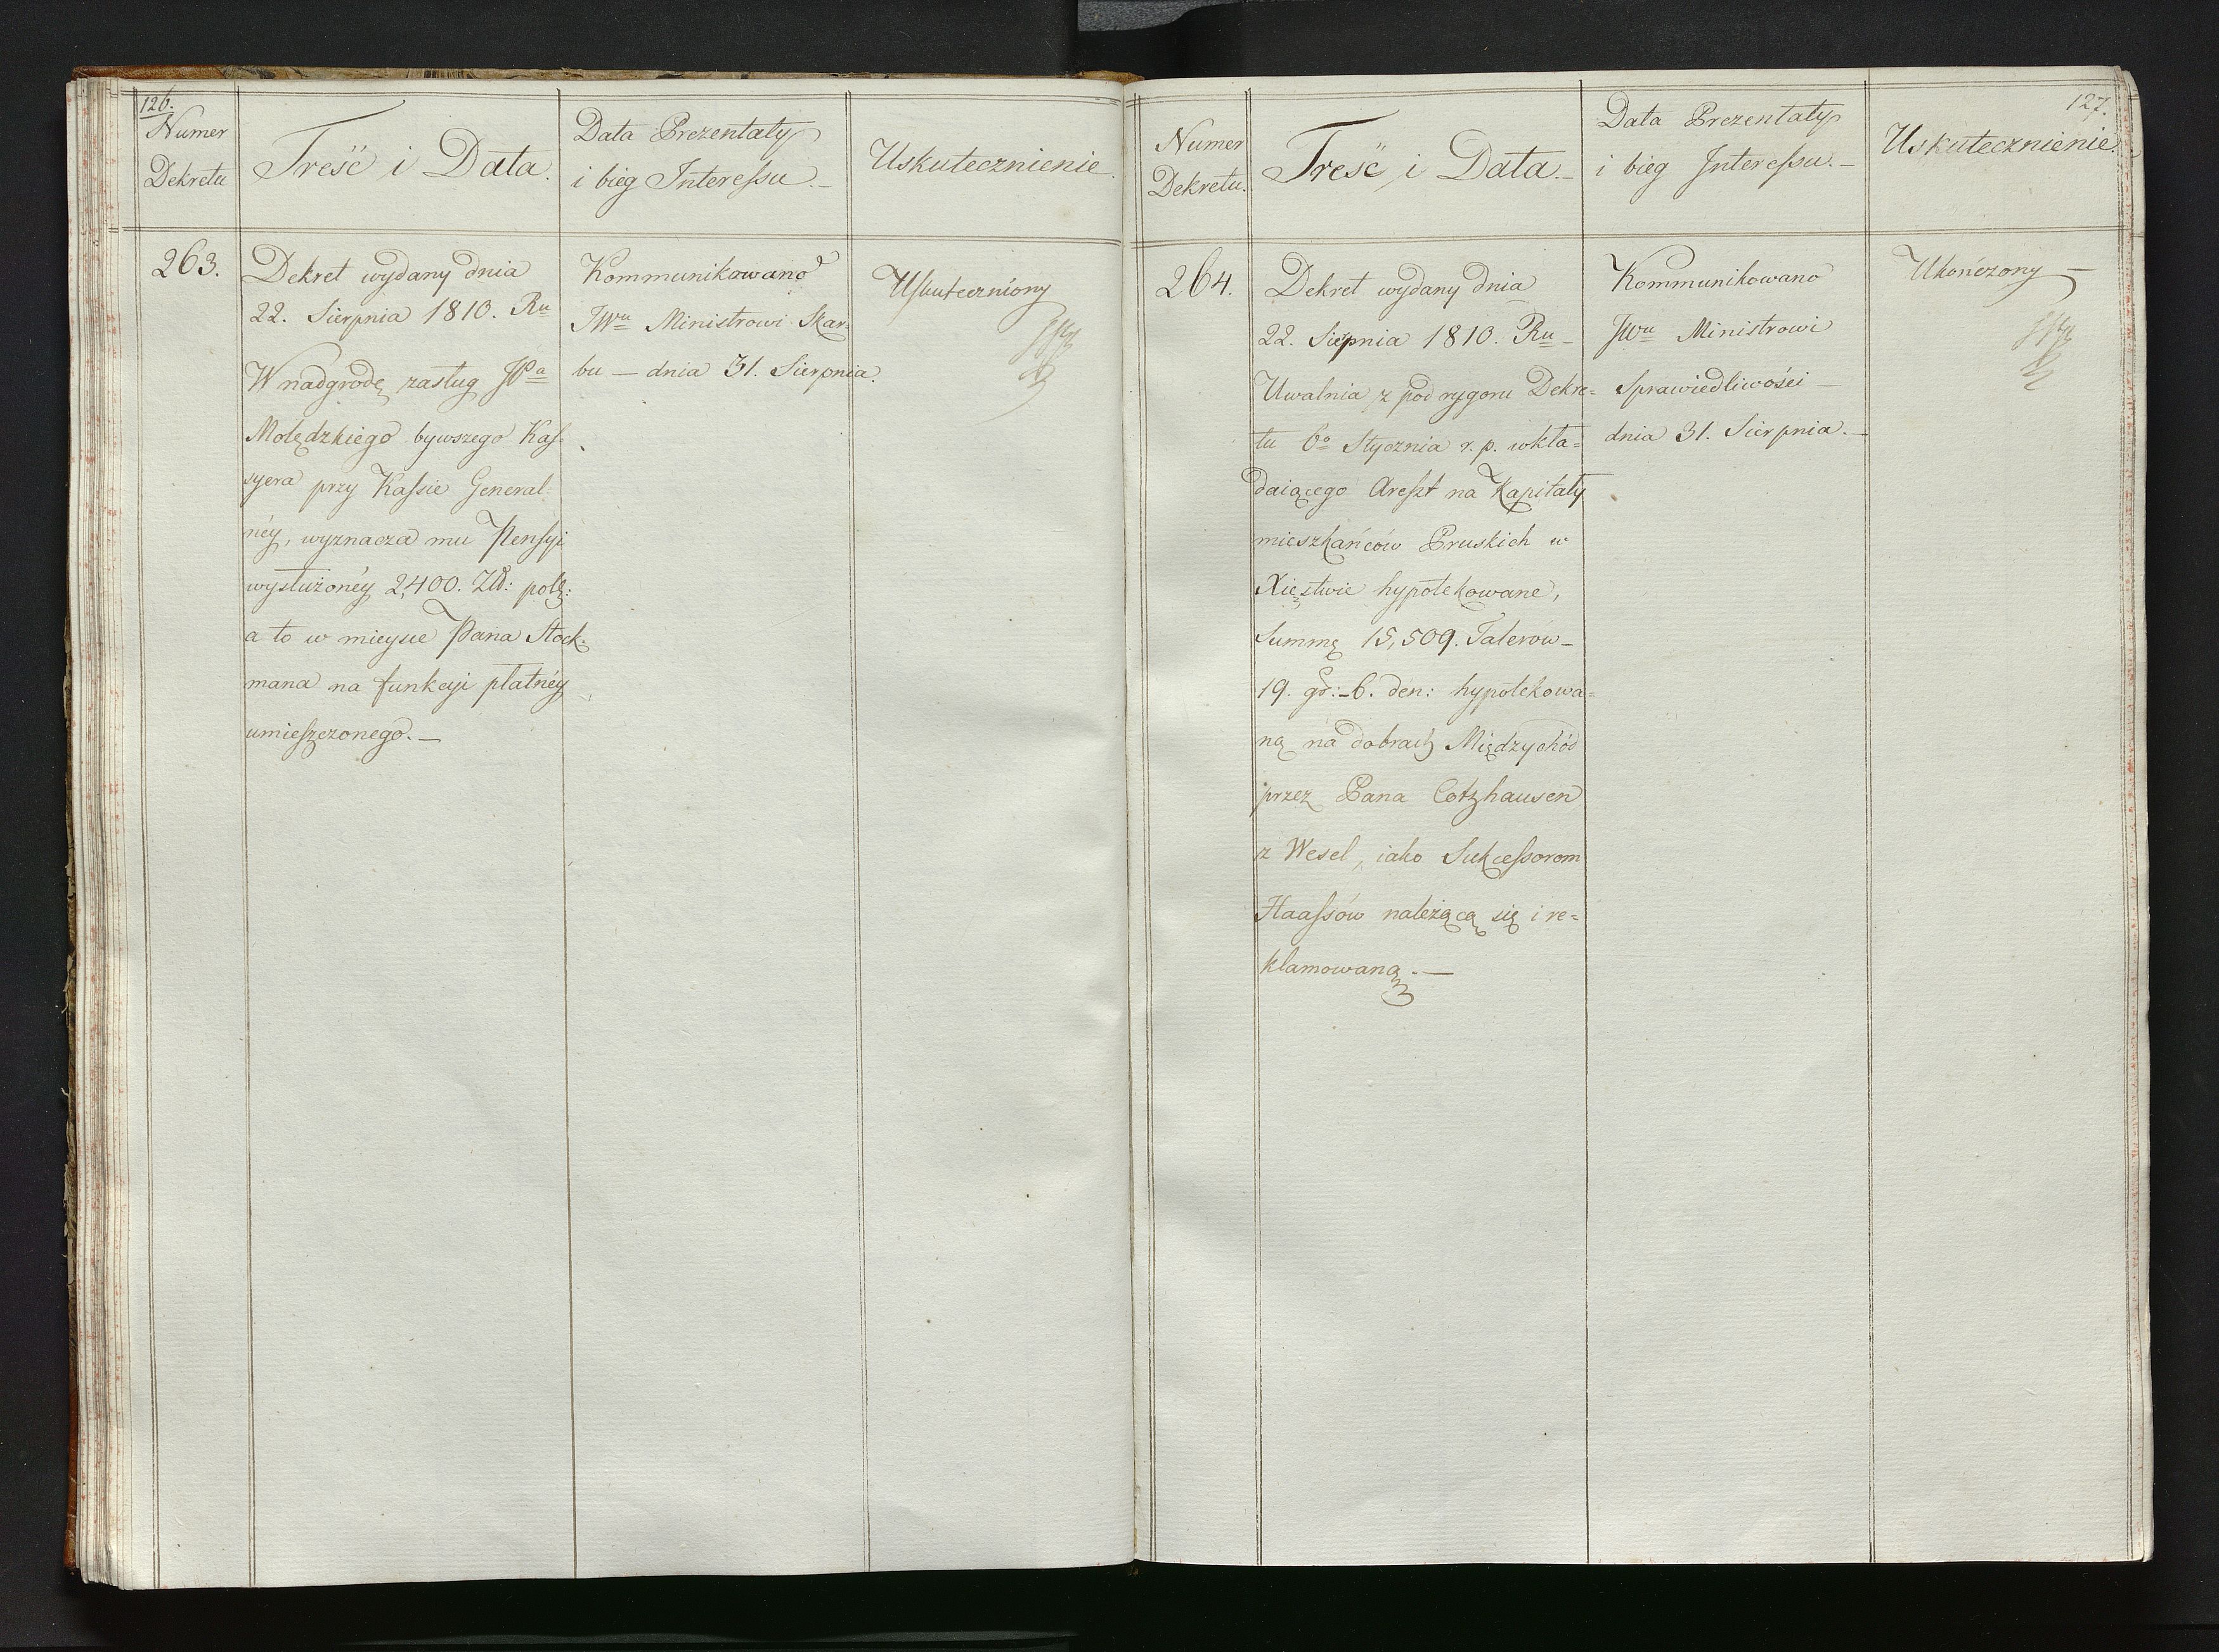 126.
Numer
Dekretu
Treść i Data.
Data Prezentaty
i bieg Interessu.—
Uskutecznienie.
263.
Dekret wydany dnia
22. Sierpnia 1810. Ru
W nadgrodę zasług JPa
Molędzkiego bywszego Kas-
syera przy Kassie General-
néy, wyznacza mu Pensyi
wysłużonéy 2,400. Zł: pols:
a to w mieysce Pana Stock-
mana na funkcyi płatnéy
umieszczonego.—
Kommunikowano
JWu Ministrowi Skar-
bu — dnia 31. Sierpnia.
Uskuteczniony
127.
Numer
Dekretu.
Treść i Data.—
Data Prezentaty
i bieg Interessu.—
Uskutecznienie.
264.
Dekret wydany dnia
22. Sierpnia 1810. Ru—
Uwalnia z pod rygoru Dekre=
tu 6o Stycznia r. p. wkła=
daiącego Areszt na Kapitały
mieszkańców Pruskich w
Xięstwie hypotekowane,
Summę 15,509. Talerów—
19. gr:–6. den: hypotekowa=
ną na dobrach Międzychód
przez Pana Cotzhausen
z Wesel, iako Sukcessorom
Haassów należącą się i re=
klamowaną.—
Kommunikowano
JWu Ministrowi
Sprawiedliwości —
dnia 31. Sierpnia.—
Ukończony —